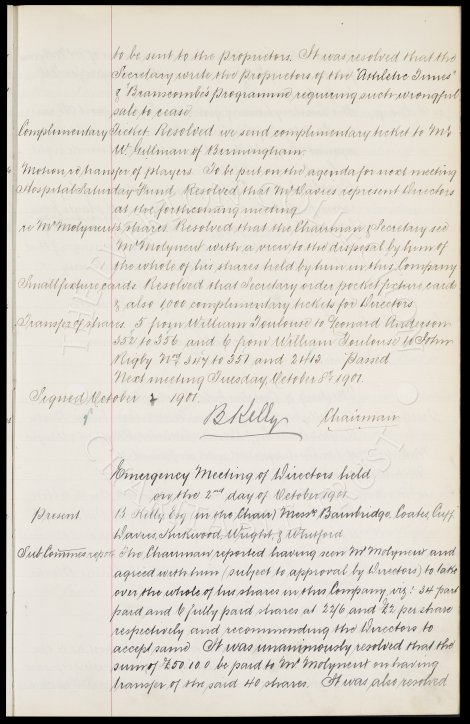 to be sent to the proprietors. It was resolved that the
Secretary write the proprietors of the "Athletic Times"
& "Branscombe's programme requiring such wrongful
sale to cease.
Complimentary Ticket. Resolved we send complimentary ticket to Mr
W. Gillman of Birmingham.
Motion re transfer of players. To be put on the agenda for next meeting
Hospital Saturday Fund. Resolved that Mr Davies represent Directors
at the forthcoming meeting
re Mr Molyneux's shares. Resolved that the Chairman & Secretary see
Mr Molyneux with a view to the disposal by him of
the whole of his shares held by him in this Company
Small fixture cards. Resolved that Secretary order pocket fixture card
& also 1,000 complimentary tickets for Directors.
Transfer of shares. 5 from William Toulouse to Leonard Anderson
352 to 356 and 6 from William Toulouse to John
Rigby Nos 347 to 351 and 2413. Passed
Next meeting Tuesday, October 8th 1901.
Signed October 1901.
B Kelly Chairman
Emergency Meeting of Directors held
on the 2nd day of October 1901
Present B. Kelly Esq (in the Chair) Messrs Bainbridge, Coates, Cuff
Davies, Kirkwood, Wright, & Whitford
Sub Comm report The Chairman reported having seen Mr Molyneux and
agreed with him (subject to approval by Directors) to take
over the whole of his shares in this Company, viz: 34 part
paid and 6 fully paid shares at 22/6 and £2 per share
respectively and recommending the Directors to
accept same. It was unanimously resolved that the
sum of £50 10 0 be paid to Mr Molyneux on having
transfer of the said 40 shares. It was also resolved